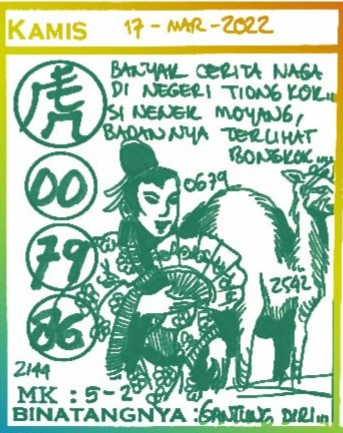 KAMIS 17-MAR-2022
BANYAK CERITA NAGA
DI NEGERI TIONGKOK..
SI NENEK MOYANG,
BADANNYA TERLIHAT
BONGKOK....
虎
00
79
86
0679
2542
2144
MK : 5-2
BINATANGNYA : GANTUNG DIRI...